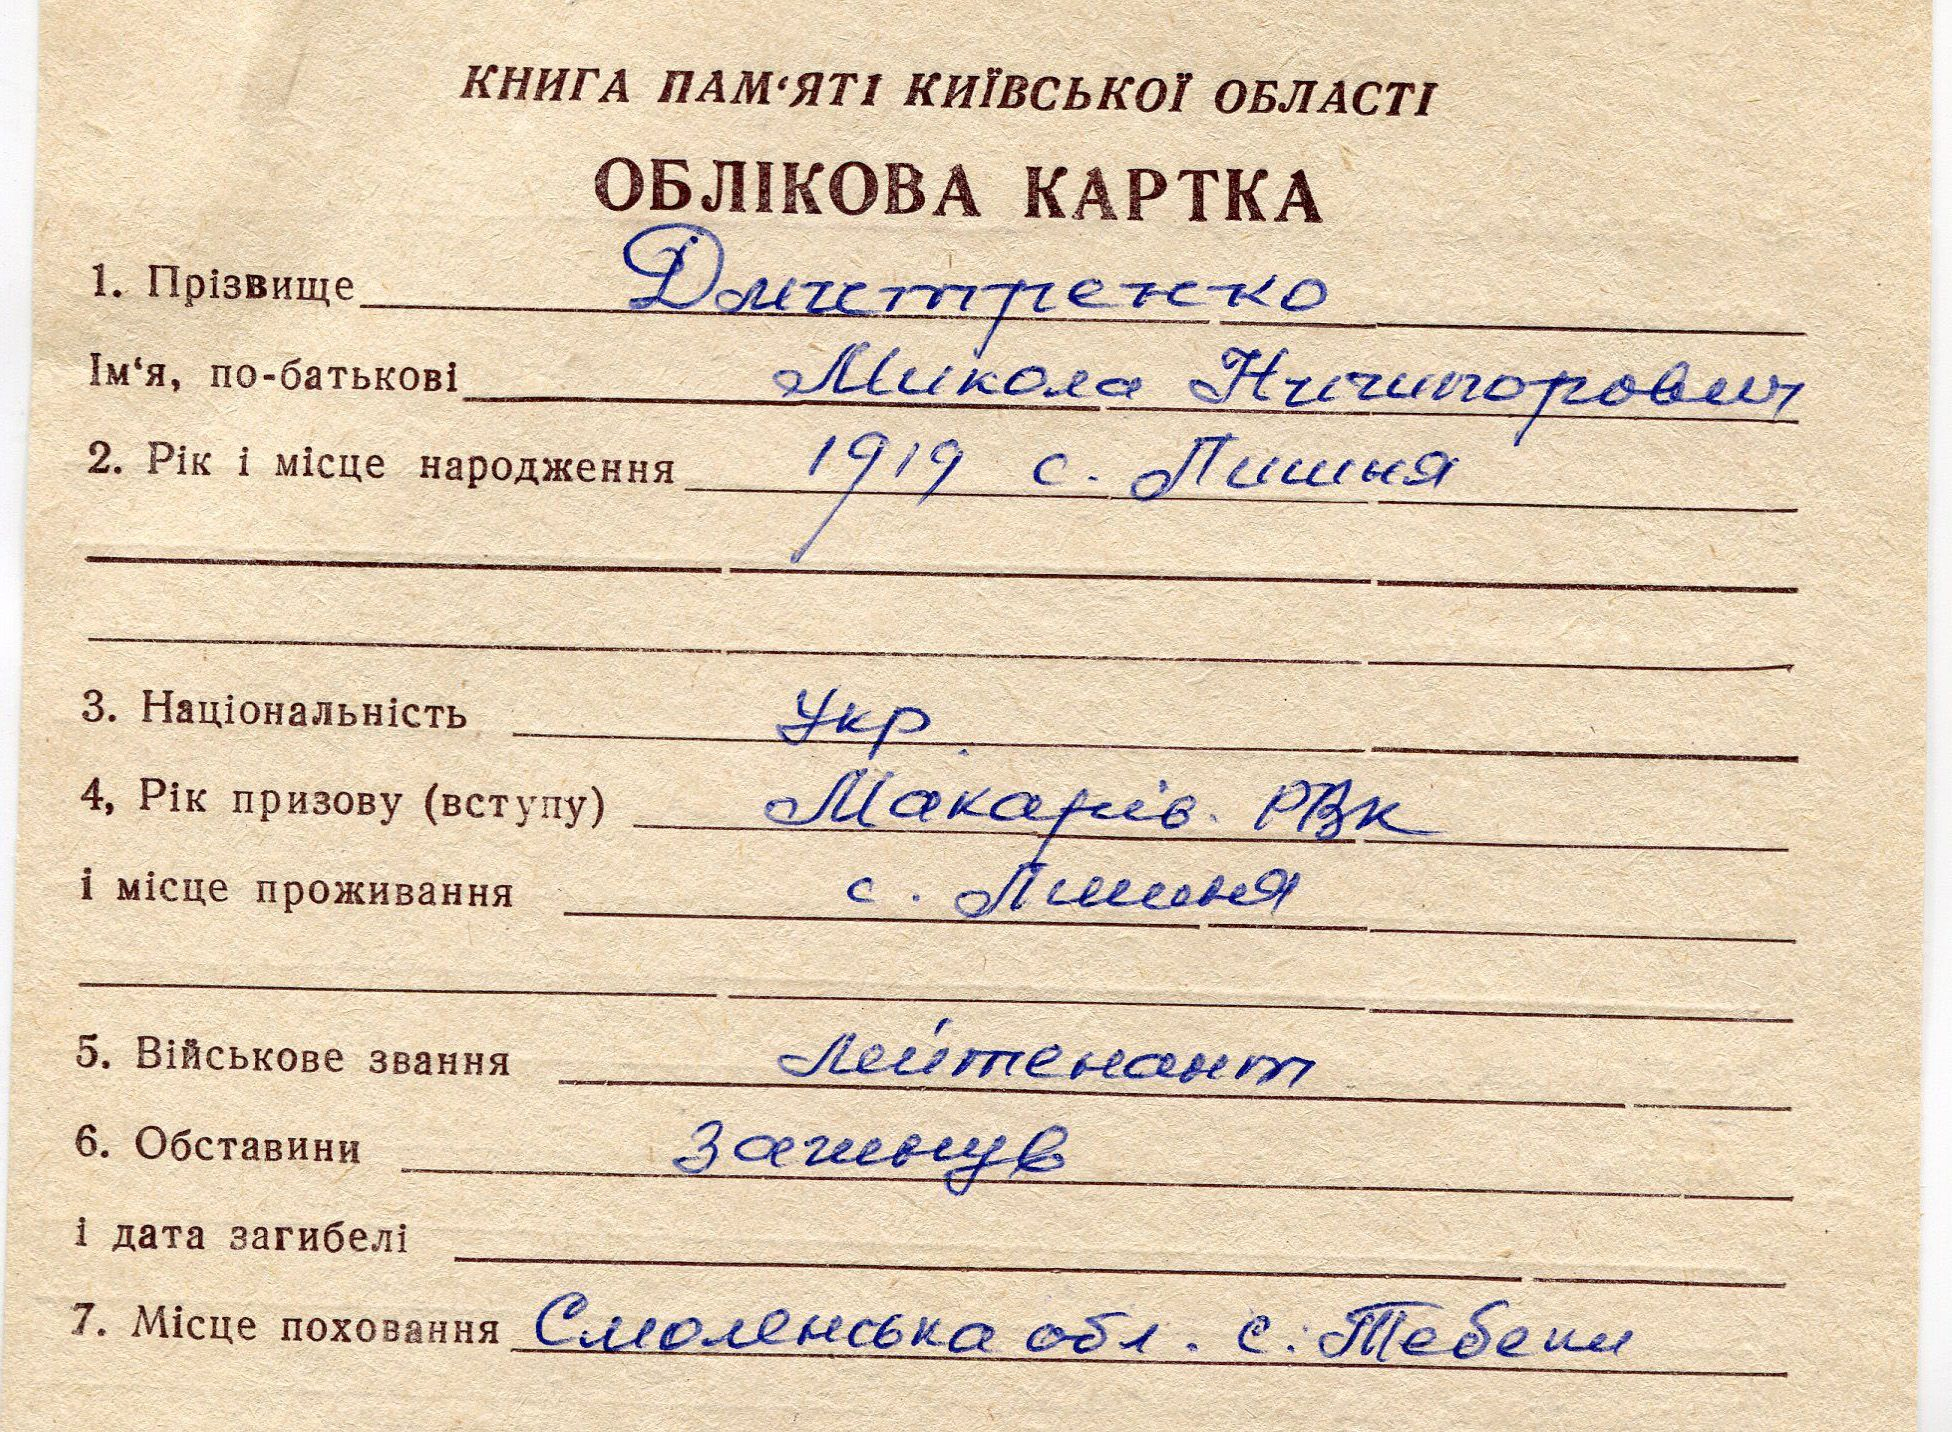 КНИГА ПАМ‘ЯТІ КИЇВСЬКОЇ ОБЛАСТІ
ОБЛІКОВА КАРТКА
1. Прізвище Дмитренко
Ім‘я, по-батькові Микола Ничипорович
2. Рік і місце народження 1919 с. Лишня
3. Національність Укр.
4, Рік призову (вступу) Макарів. РВК
і місце проживання с. Лишня
5. Військове звання лейтенант
6. Обставини загинув
і дата загибелі
7. Місце поховання Смоленська обл. с. Тебеки